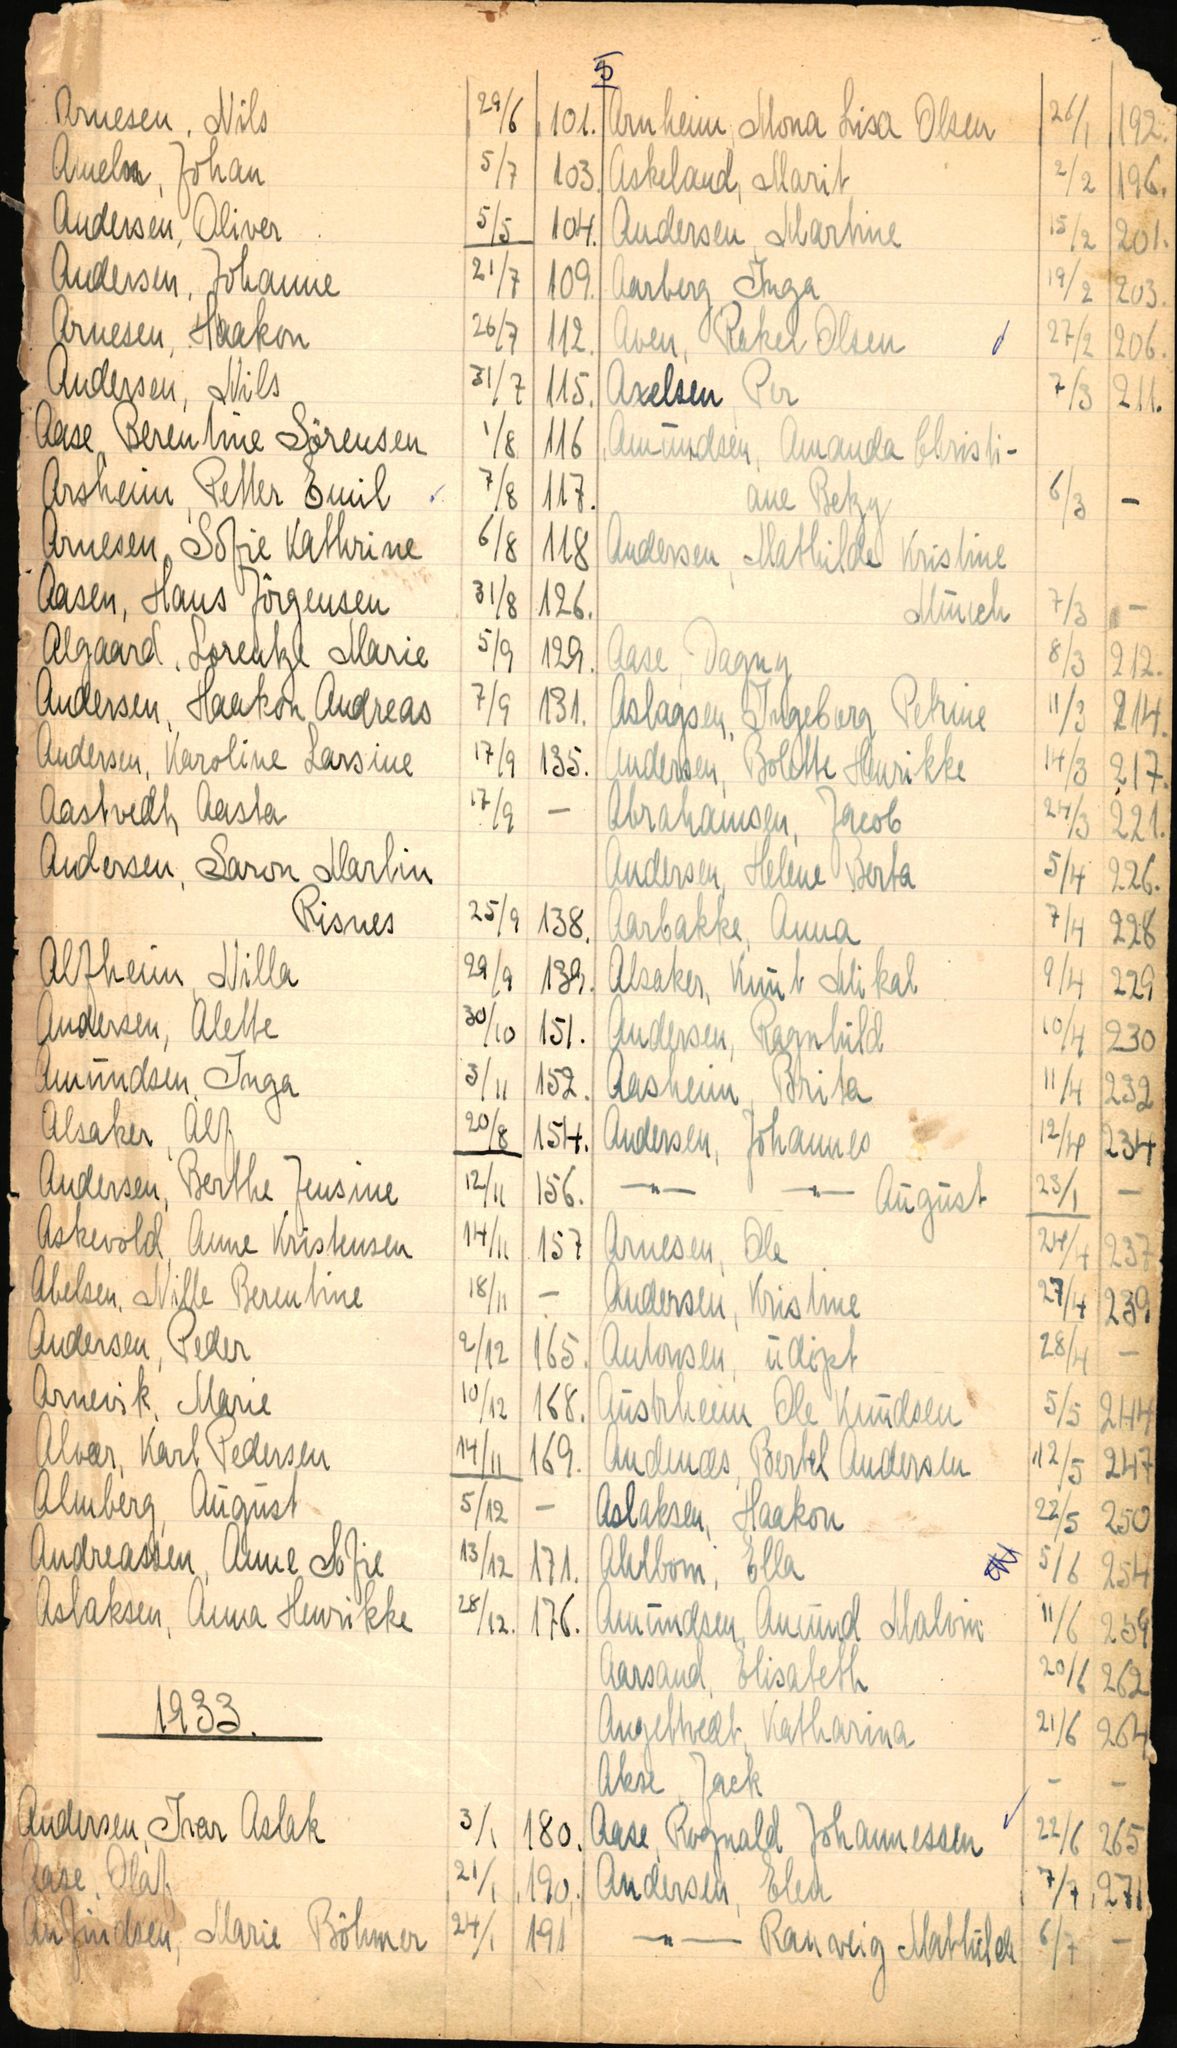 5
Arnesen, Nils 29/6 101.
Johan 5/7 103.
Andersen, Oliver 5/5 104.
Andersen, Johanne 21/7 109.
Arnesen, Haakon 26/7 112.
Andersen, Nils 31/7 115.
Aase, Berentine Sörensen 1/8 116
Arsheim, Petter Emil 7/8 117.
Arnesen, Sofie Kathrine 6/8 118
Aasen, Hans Jörgensen 31/8 126.
Algaard, Lorentze Marie 5/9 129.
Andersen, Haakon Andreas 7/9 131.
Andersen, Karoline Larsine 17/9 135.
Aastvedt, Aasta 17/9 —
Andersen, Saron Martin
Risnes 25/9 138.
Alfheim, Nilla 29/9 139.
Andersen, Alette 30/10 151.
Amundsen, Inga 3/11 152.
Alsaker, Alf 20/8 154.
Andersen, Berthe Jensine 12/11 156.
Askevold, Anne Kristensen 14/11 157
Abelsen, Nille Berentine 18/11 —
Andersen, Peder 2/12 165.
Arnevik, Marie 10/12 168.
Alvær, Karl Pedersen 14/11 169.
Almberg, August 5/12 —
Andreassen, Anne Sofie 13/12 171.
Aslaksen, Anna Henrikke 28/12. 176.
1933.
Andersen, Ivar Aslak 3/1 180.
Aase, Olaf 21/1 190.
Anfindsen, Marie Böhmer 24/1 191
Arnheim, Mona Lisa Olsen 26/1 192.
Askeland, Marit 2/2 196.
Andersen, Martine 15/2 201.
Aarberg, Inga 19/2 203.
Aven, Rakel Olsen 27/2 206.
Axelsen, Per 7/3 211.
Amundsen, Amanda Christi-
ane Betzy 6/3 —
Andersen, Mathilde Kristine
Münch 7/3 —
Aase, Dagny 8/3 212.
Aslagsen, Ingeborg Petrine 11/3 214.
Andersen, Bolette Henrikke 14/3 217.
Abrahamsen, Jacob 24/3 221.
Andersen, Helene Berta 5/4 226.
Aarbakke, Anna 7/4 228
Alsaker, Knut Mikal 9/4 229
Andersen, Ragnhild 10/4 230
Aasheim, Brita 11/4 232
Andersen, Johannes 12/4 234
—"— —"— August 23/1 —
Arnesen, Ole 24/4 237
Andersen, Kristine 27/4 239
Antonsen, udöpt 28/4 —
Austrheim, Ole Knudsen 5/5 244
Andenæs, Bertel Andersen 12/5 247
Aslaksen, Haakon 22/5 250
Ahlbom, Ella 5/6 254
Amundsen, Amund Malvin 11/6 259
Aarsand, Elisabeth 20/6 262
Angeltvedt, Katharina 21/6 264
Akse, Jack — —
Aase, Rognald Johannessen 22/6 265
Andersen, Elen 7/7 271
—"— Ranveig Mathilde 6/7 —